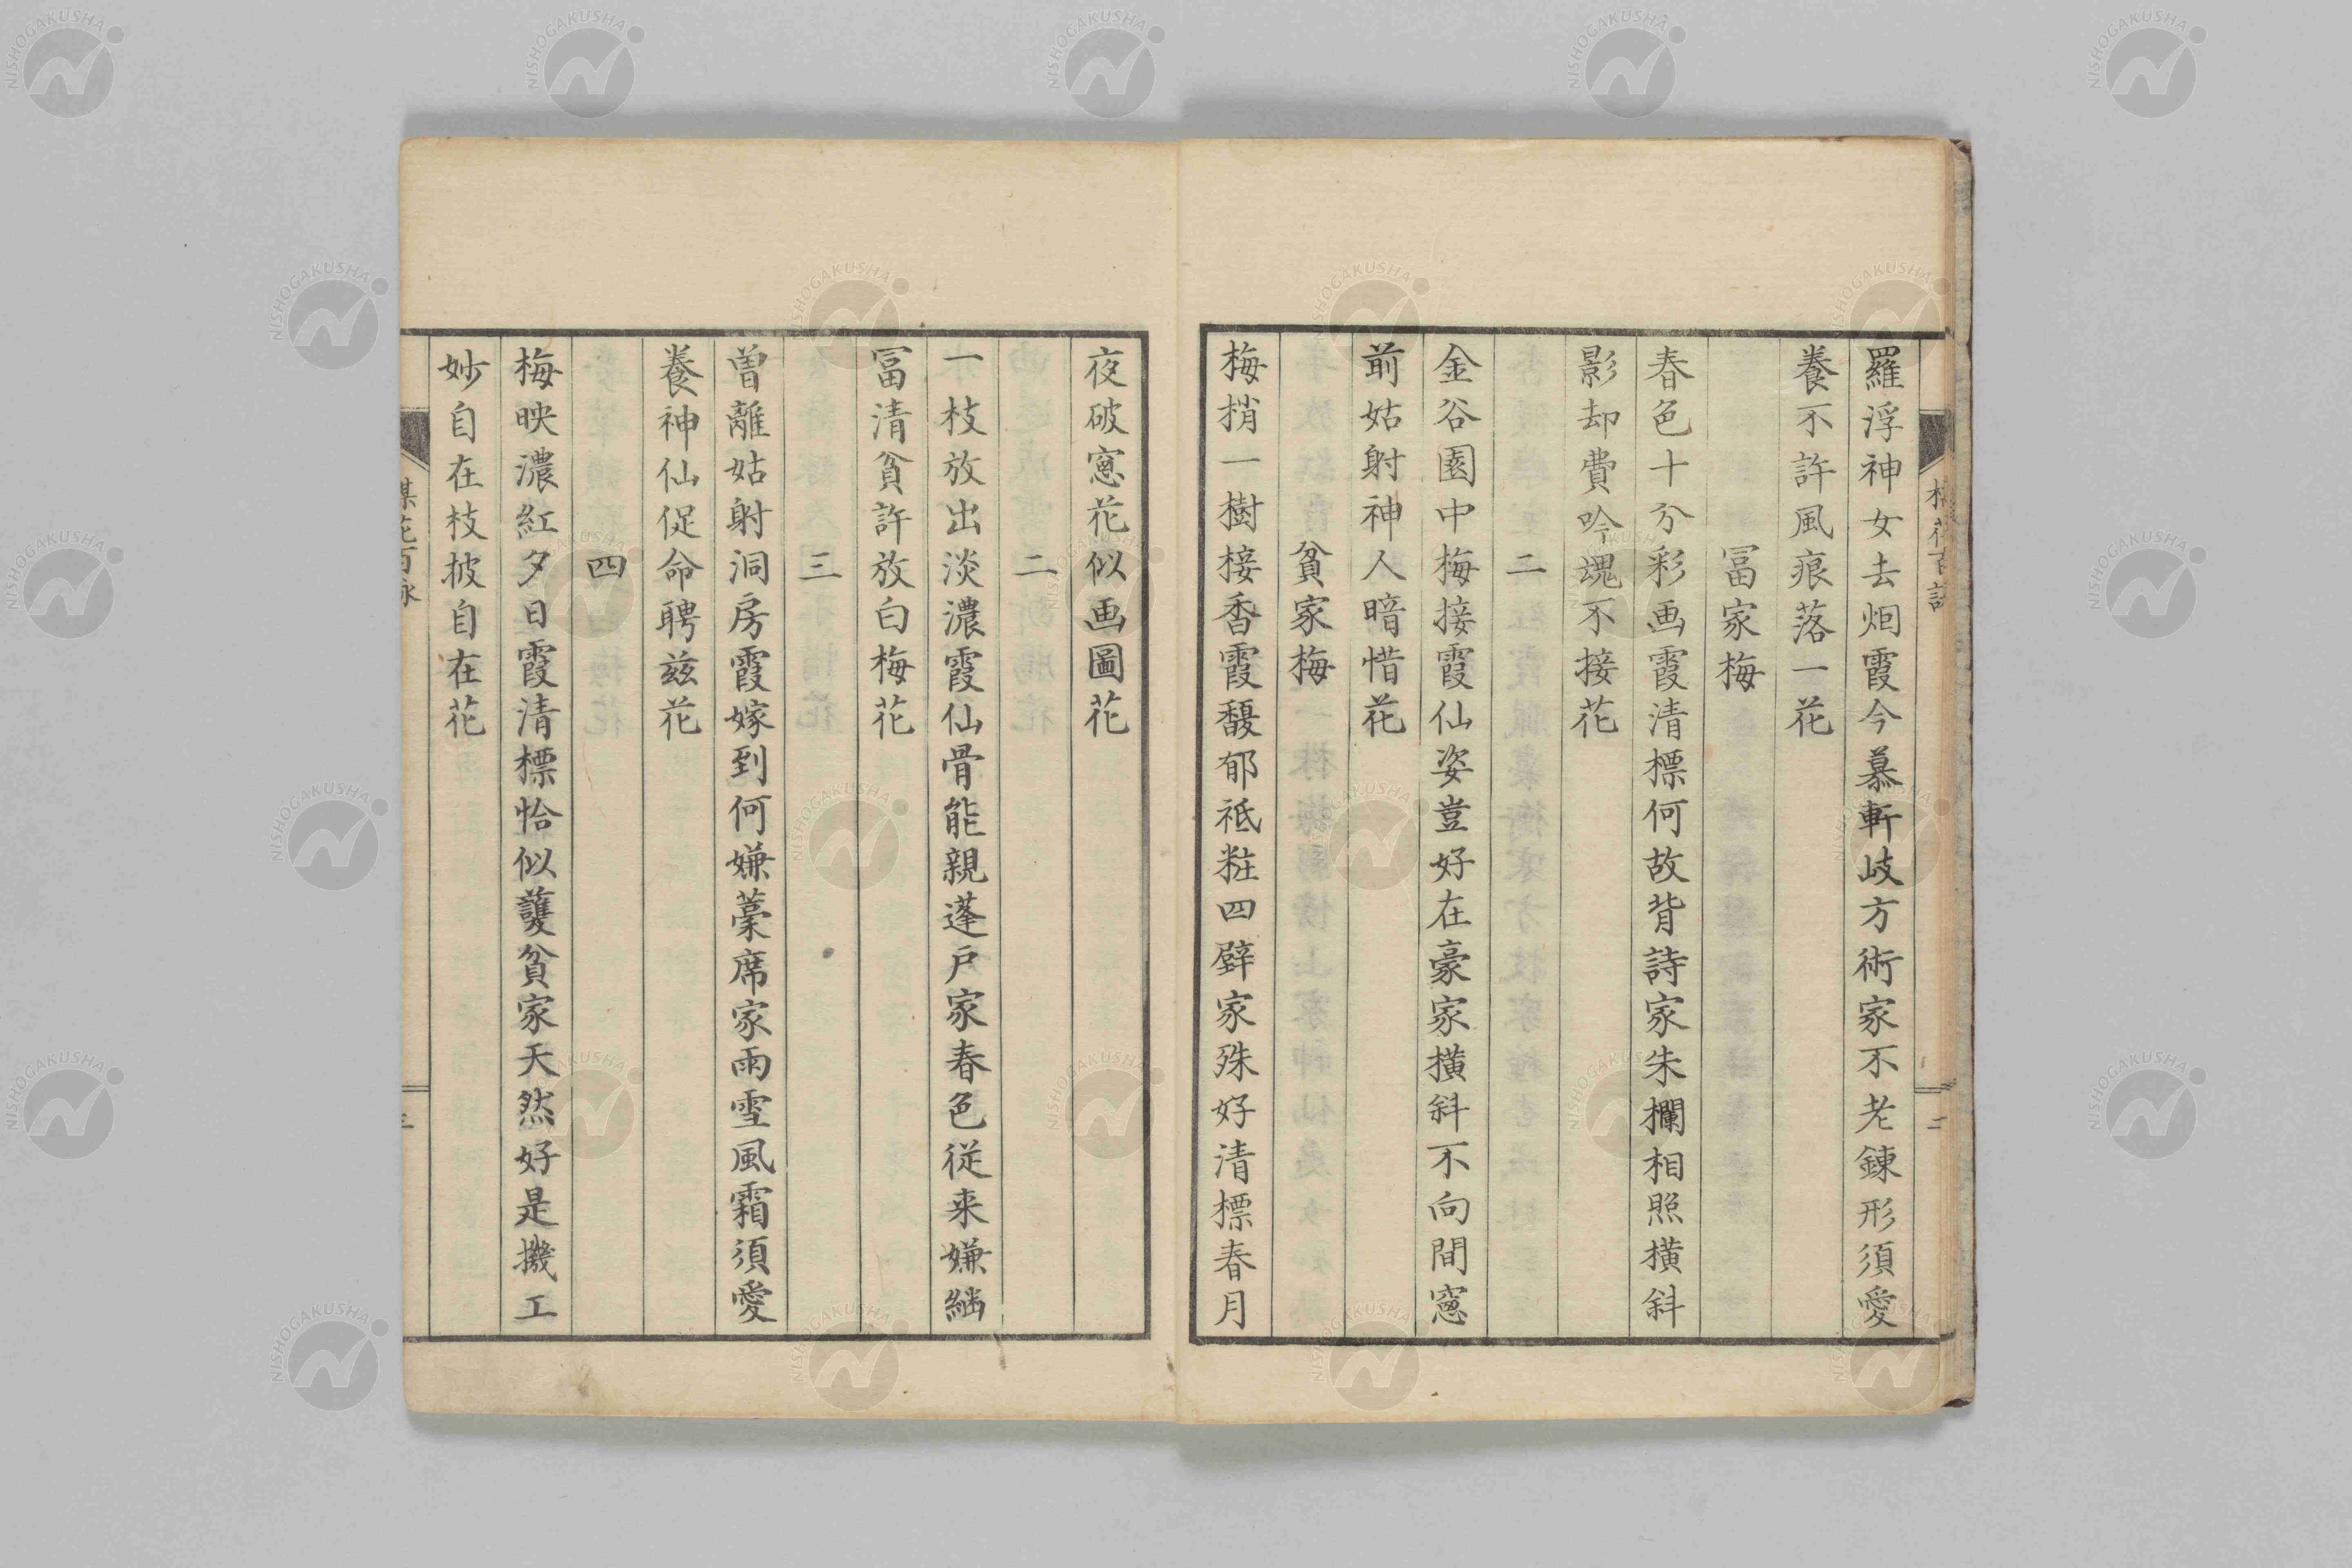 羅浮神女去烟霞今慕軒岐方術家不老錬形須愛
養不許風痕落一花
冨家梅
春色十分彩画霞清標何故背詩家朱欄相照横斜
影却費吟魂不接花
二
金谷園中梅接霞仙姿豈好在豪家横斜不向間窓
前姑射神人暗惜花
貧家梅
梅梢一樹接香霞馥郁祗粧四壁家殊好清標春月
夜破窓花似画圖花
二
一枝放出淡濃霞仙骨能親蓬戸家春色従来嫌
冨清貧許放白梅花
三
曽離姑射洞房霞嫁到何嫌藁席家雨雪風霜須愛
養神仙促命聘兹花
四
梅映濃紅夕日霞清標恰似護貧家天然好是機工
妙自在枝披自在花
二
NISHOGAKUSHA